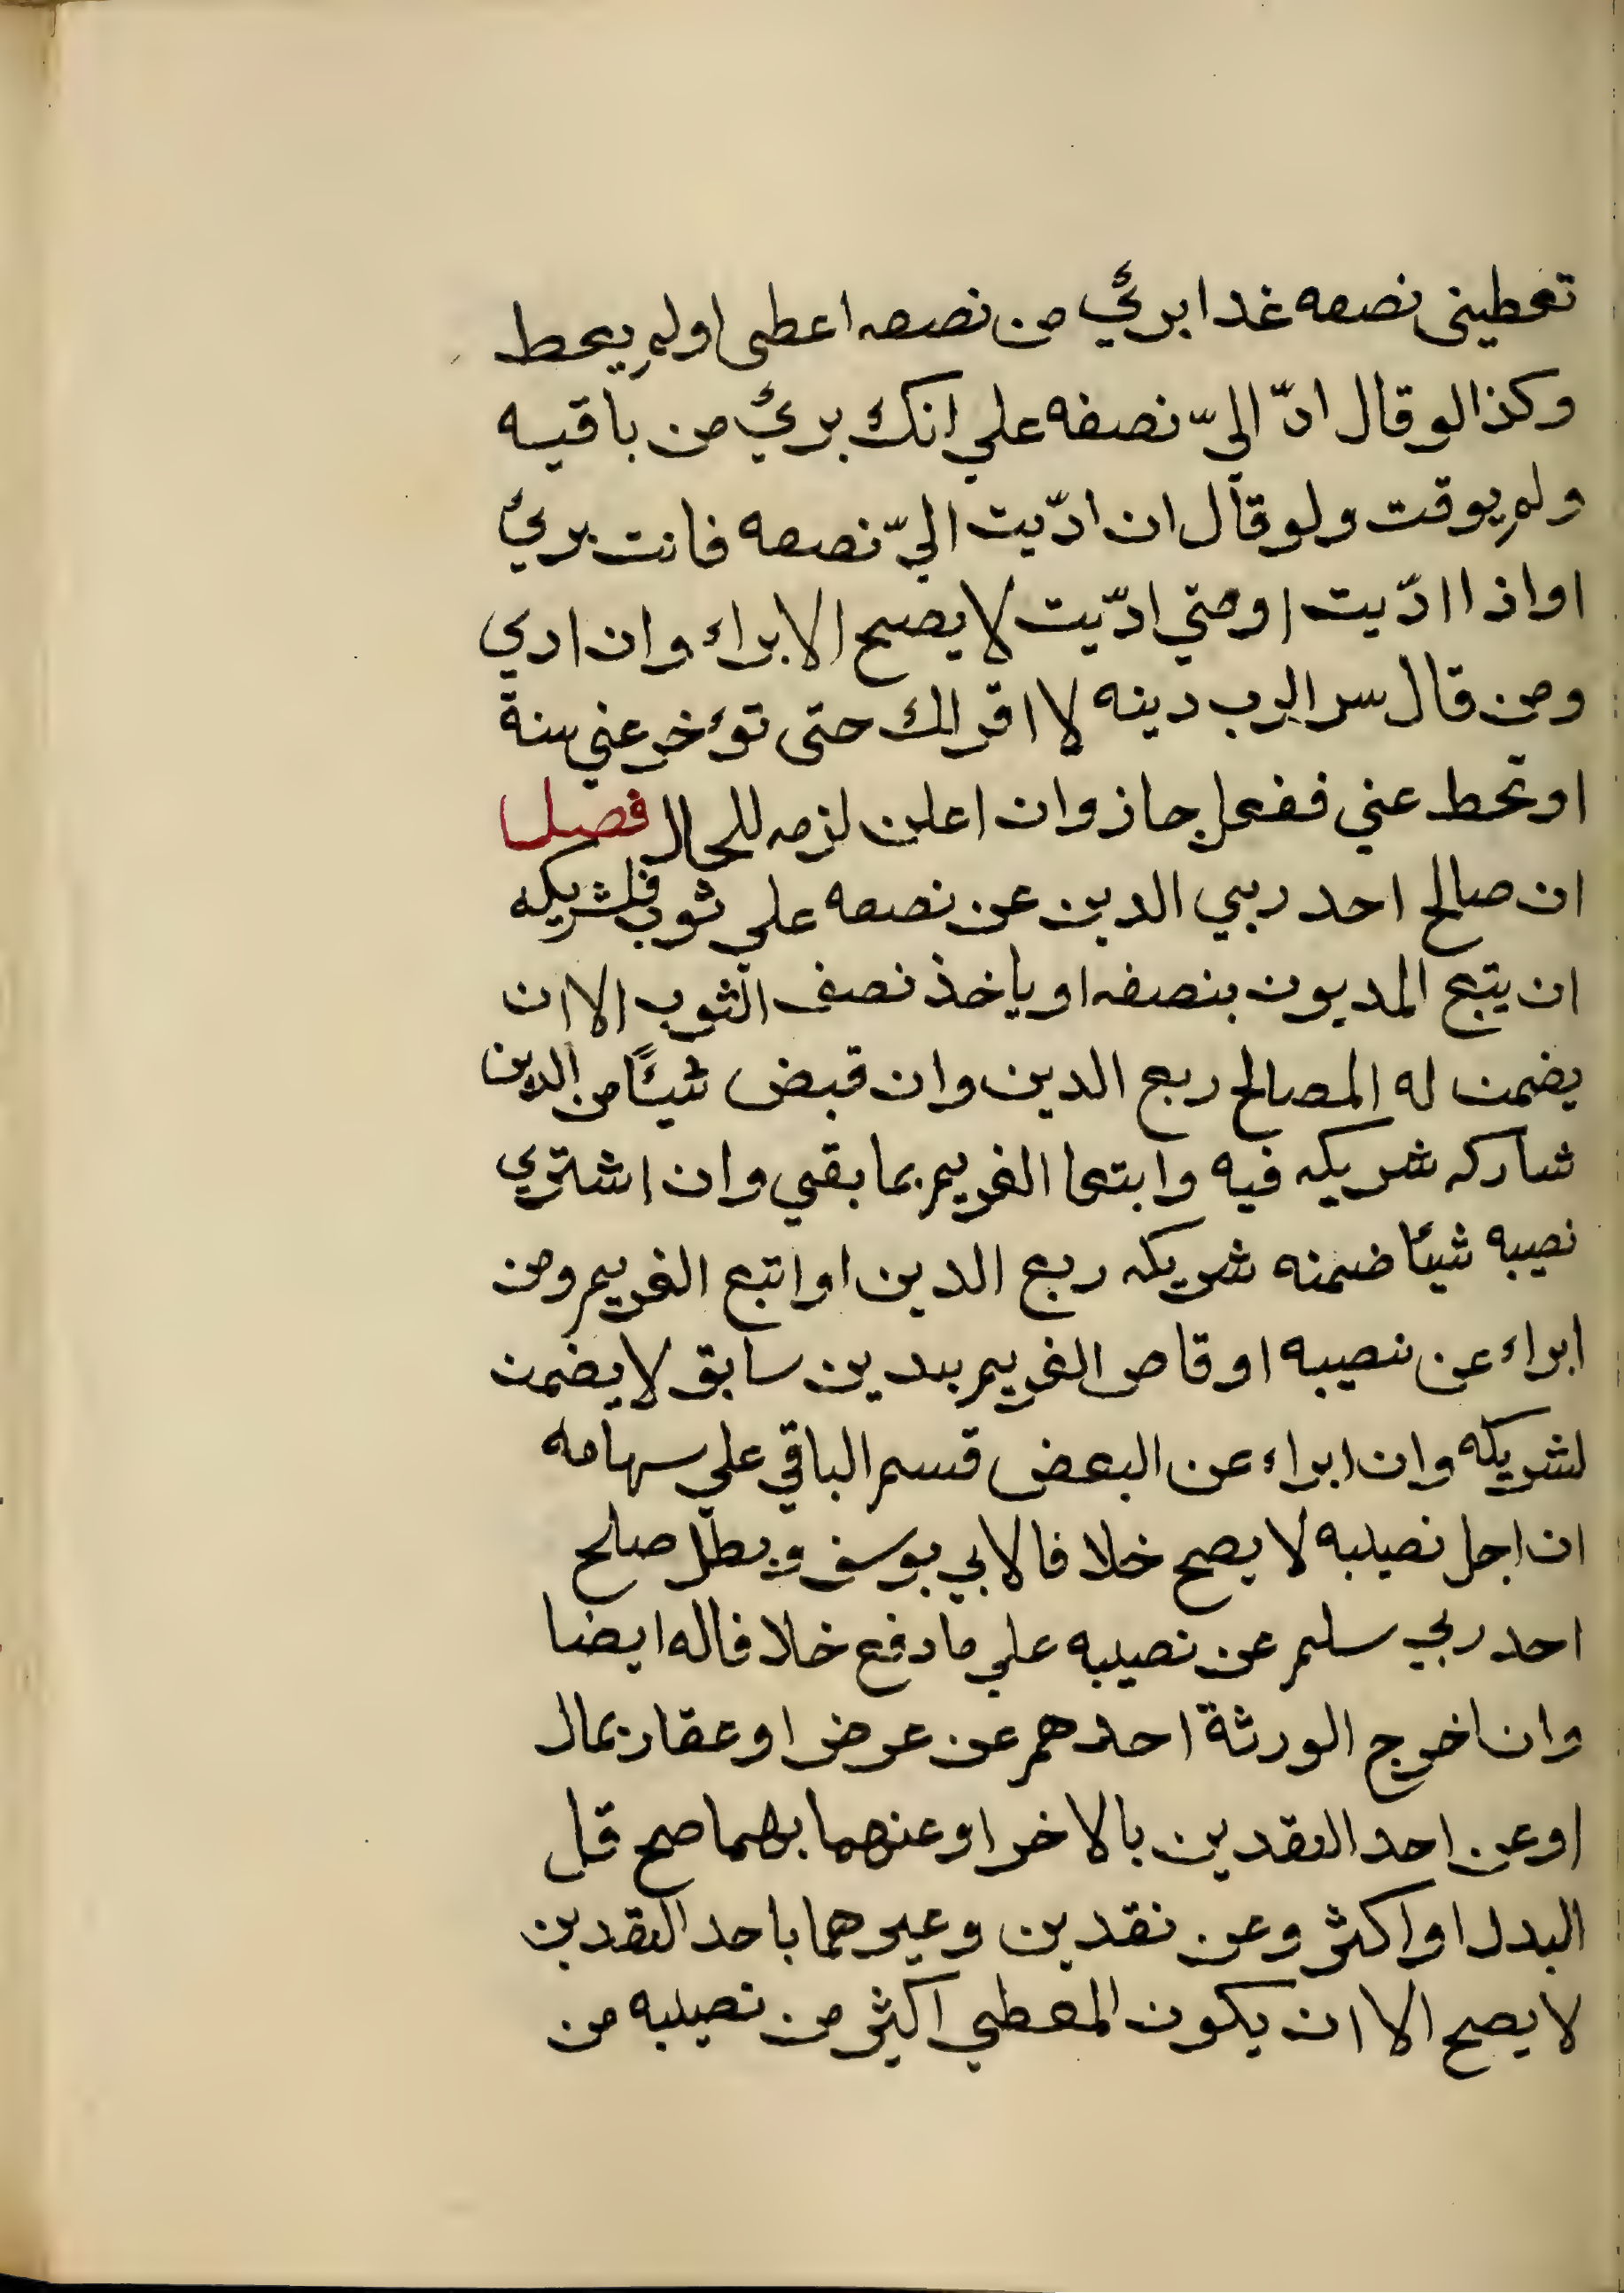 تعطينى نصفه غدا برئ من نصفه اعطى اولم يعط
وكذا لو قال ادّ اليّ نصفه علي انك برئ من باقيه
ولم يوقت ولو قال ان ادّيت اليّ نصفه فانت برئ
او اذا ادّيت او متي ادّيت لا يصح الابراء وان ادي
ومن قال سرا لرب دينه لا اقر لك حتى تؤخر عني سنة
او تحط عني ففعل جاز وان اعلن لزمه للحال فصل
ان صالح احد ربي الدين عن نصفه علي ثوب فلشريكه
ان يتبع المديون بنصفه او ياخذ نصف الثوب الا ان
يضمن له المصالح ربع الدين وان قبض شيئًا من الدين
شاركه شريكه فيه واتبعا الغريم بما بقي وان اشتري
نصيبه شيئا ضمنه شريكه ربع الدين او اتبع الغريم ومن
ابراء عن نصيبه او قاص الغريم بدين سابق لا يضمن
لشريكه وان ابراء عن البعض قسم الباقي علي سهامه
ان اجل نصيبه لا يصح خلافا لابي يوسف ويبطل صلح
احد ربي سلم عن نصيبه علي ما دفع خلافا له ايضا
وان اخرج الورثة احدهم عن عرض او عقار بمال
او عن احد النقدين بالاخر او عنهما بهما صح قل
البدل او اكثر وعن نقدين وغيرهما باحد النقدين
لا يصح الا ان يكون المعطي اكثر من نصيبه من